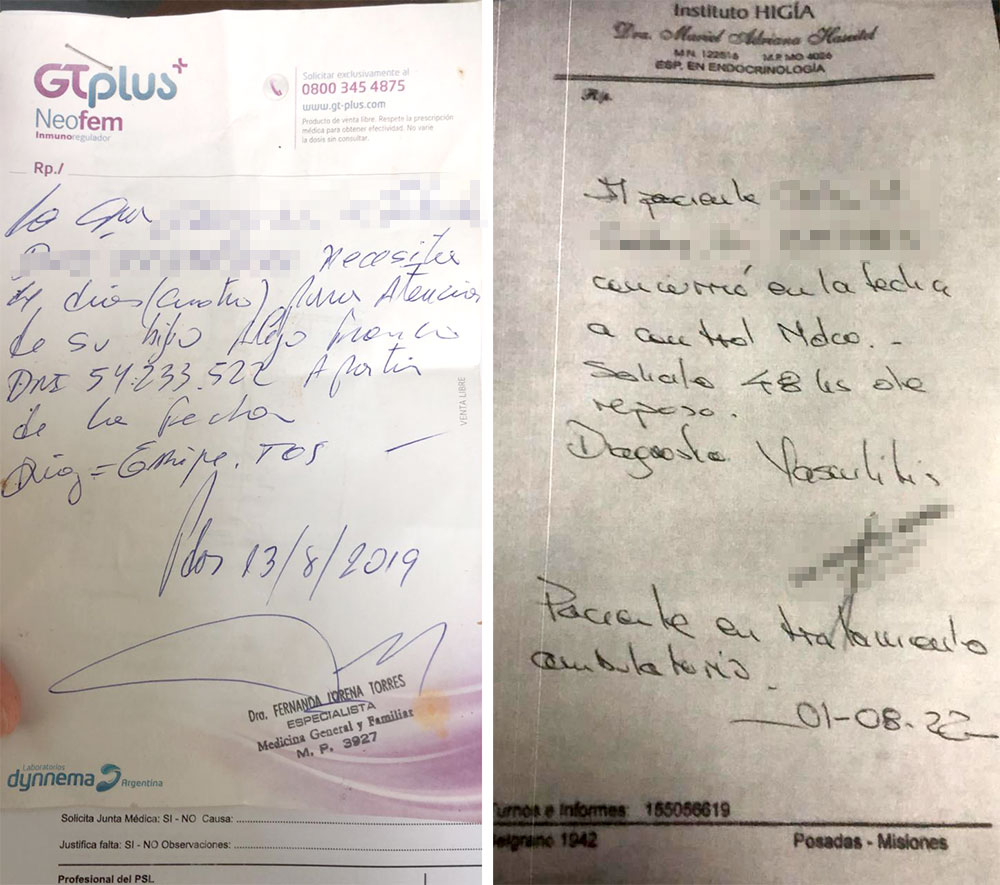 GTplus
Neofem
Inmunoregulador
Solicitar exclusivamente al
0800 345 4875
www.gt-plus.com
Producto de venta libre. Respete la prescripción
médica para obtener efectividad. No varíe
la dosis sin consultar.
Rp./
la Gra
Necesita
4 dias (cuatro) para Atencion
de su hijo Alejo Franco
DNI 54.233.522 A partir
de la fecha
Diag = Gripe. TOS
Pdas 13/8/2019
VENTA LIBRE
Dra. FERNANDA LORENA TORRES
ESPECIALISTA
Medicina General y Familiar
M. P. 3927
Laboratorios
dynnema Argentina
Solicita Junta Médica: SI - NO Causa:
Justifica falta: SI - NO Observaciones:
Profesional del PSL
Instituto HIGÍA
Dra. Mariel Adriana
M.N. 122516 M.P. MO 4026
ESP. EN ENDOCRINOLOGÍA
Rp.
El paciente
concurrió en la fecha
a control Mdco. -
Solicito 48 hs de
reposo.
Diagnostico Vasculitis
Paciente en tratamiento
ambulatorio.
01-08-22
urnos e Informes: 155056619
elgrano 1942 Posadas - Misiones